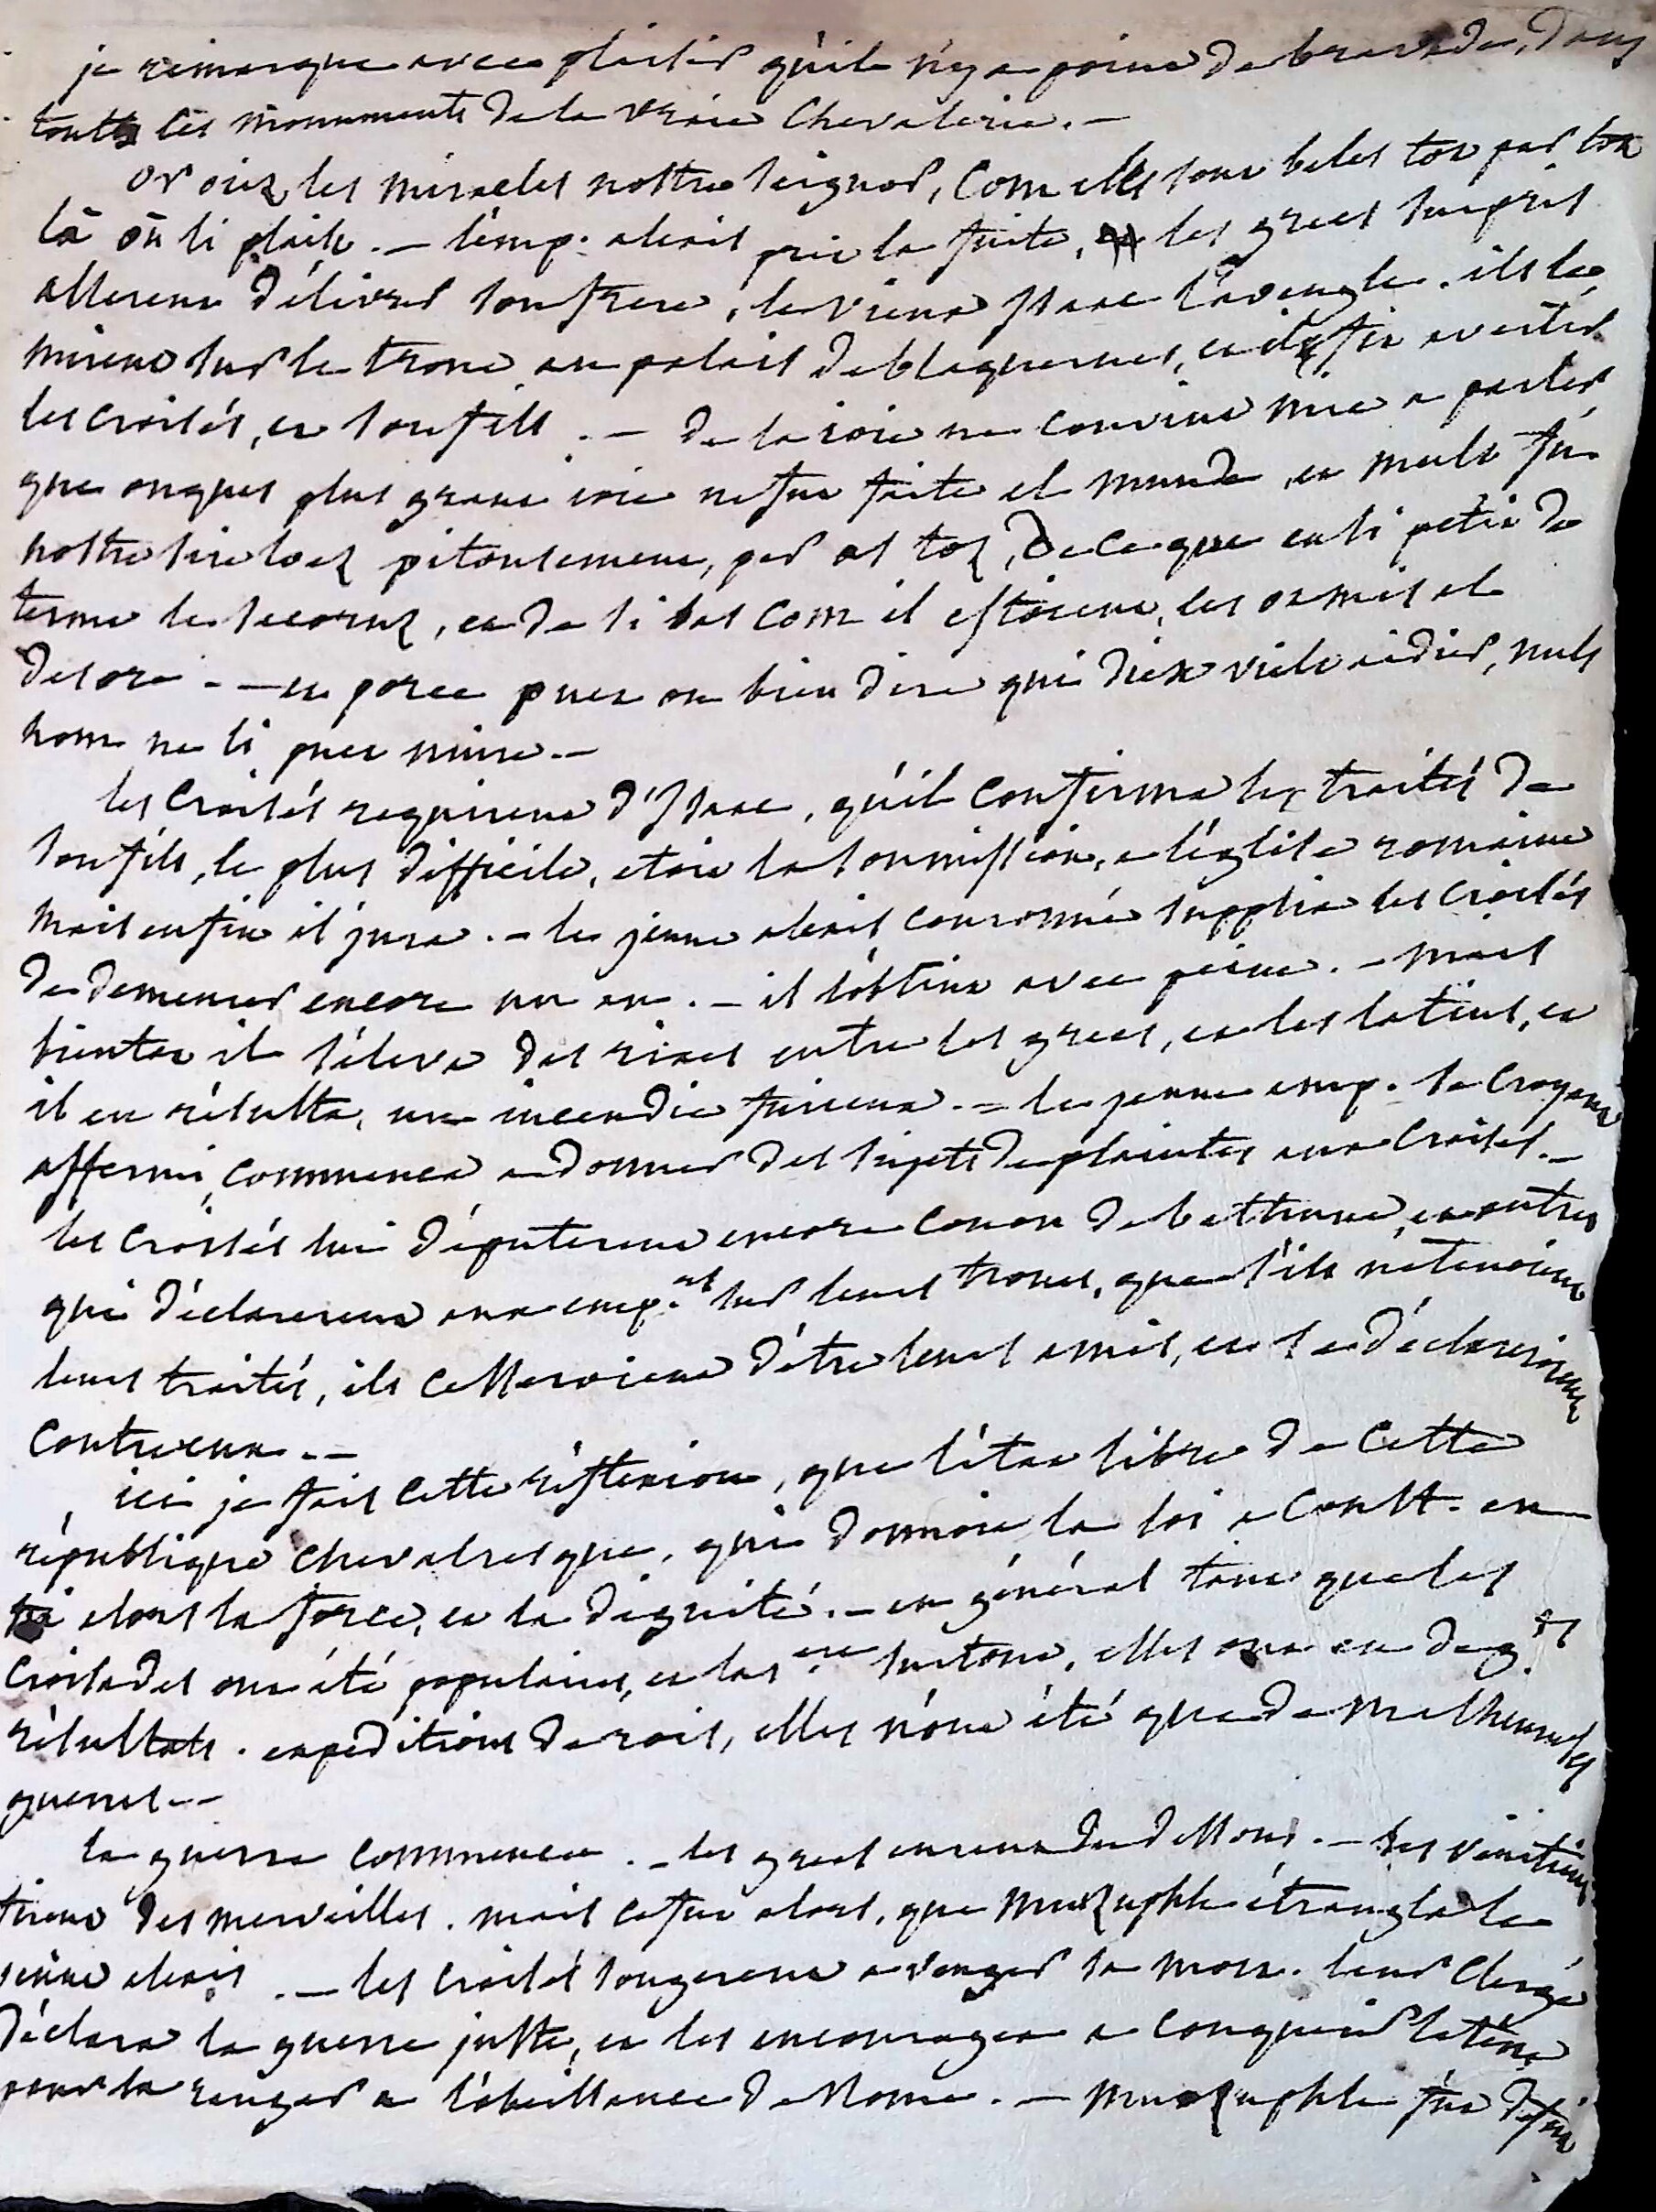 je remarque avec plaisir qu'il n'y a point de bravades, dans
toutts les monuments de la vraie Chevalerie. —
or oiez les miracles nostre seignor, com elles sont beles tot par tot
là où li plaist. — l'emp. alexis prit la fuite, les grecs surpris
allerent délivrer son frere, le vieux Isaac l'aveugle. ils le
mirent sur le trone au palais de blaquernes, et il fit avertir
les croisés, et son fils. — de la ioie ne convient mie a parler
que onques plus grant ioie ne fut faite el munde, et mult fu
nostre sire loez pitousement, par as toz, de ce que en si petit de
terme les secoruz, et de si bas com il estoient, les ot mis al
desore. — et porce puet on bien dire qui diex vielt aidier, nuls
hom ne li puet nuire. —
les Croisés requirent d'Isaac, qu'il confirma les traités de
son fils, le plus difficile, etoit la soumission, a l'église romaine
mais enfin il jura. — le jeune alexis couronné supplia les Croisés
de demeurer encore un an. — il l'obtint avec peine. — mais
bientot il s'éleva des rixes entre les grecs, et les latins, et
il en résulta, un incendie furieux. — le jeune emp. se croyant
affermi, commenca a donner des sujets de plaintes aux Croisés. —
les Croisés lui députerent encore Conon de bethune, et autres
qui déclarerent aux emp.rs sur leurs trones, que s'ils ne tenoient
leurs traités, ils cesseroient d'etre leurs amis, et se déclareroient
contre eux. —
ici je fais cette réflexion, que l'état libre de cette
république chevalresque, qui donnoit la loi a Const. en
fit alors la force, et la dignité. — en général tant que les
croisades ont été populaires, et la 1.ere surtout, elles ont eu de g.ds
résultats. expeditions de rois, elles n'ont été que de malheureuses
guerres. —
la guerre commence. — les grecs eurent du dessous. — les vénitiens
firent des merveilles. mais ce fut alors, que Murzuphle étrangla le
jeune alexis. — les croisés songerent a venger sa mort. leur Clergé
déclara la guerre juste, et les encouragea a conquerir la terre
pour la ranger a l'obeissance de Rome. — Murzuphle fut défait